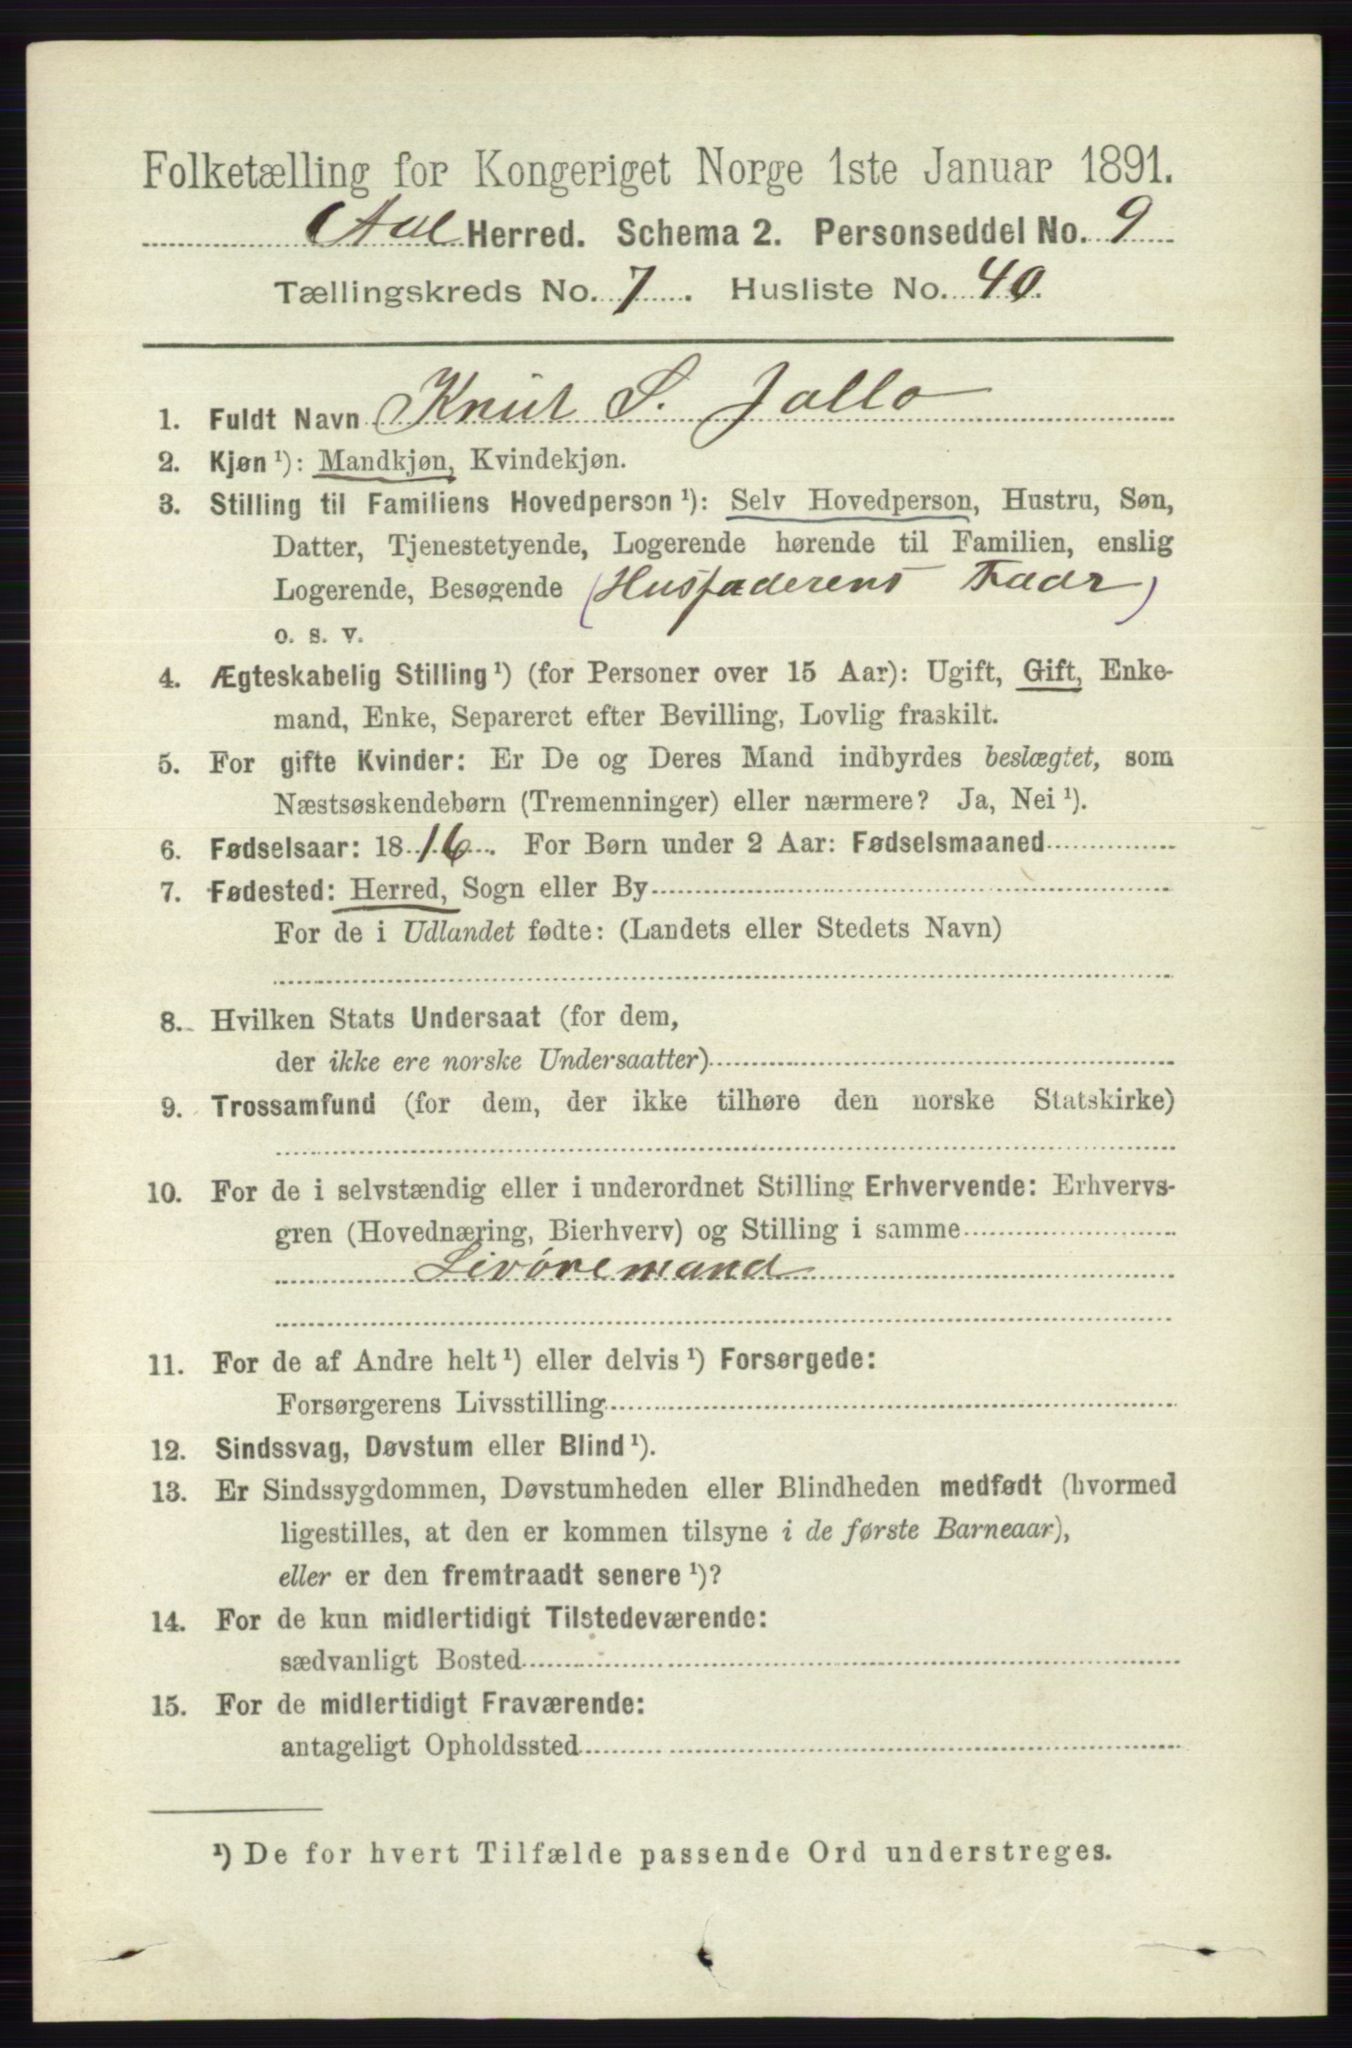 Folketælling for Kongeriget Norge 1ste Januar 1891.
Aal Herred. Schema 2. Personseddel No. 9
Tællingskreds No. 7. Husliste No. 40.
1. Fuldt Navn Knut S. Jallo
2. Kjøn ¹): Mandkjøn, Kvindekjøn.
3. Stilling til Familiens Hovedperson ¹): Selv Hovedperson, Hustru, Søn,
Datter, Tjenestetyende, Logerende hørende til Familien, enslig
Logerende, Besøgende (Husfaderens Fader)
o. s. v.
4. Ægteskabelig Stilling ¹) (for Personer over 15 Aar): Ugift, Gift, Enke-
mand, Enke, Separeret efter Bevilling, Lovlig fraskilt.
5. For gifte Kvinder: Er De og Deres Mand indbyrdes beslægtet, som
Næstsøskendebørn (Tremenninger) eller nærmere? Ja, Nei ¹).
6. Fødselsaar: 1816. For Børn under 2 Aar: Fødselsmaaned
7. Fødested: Herred, Sogn eller By
For de i Udlandet fødte: (Landets eller Stedets Navn)
8. Hvilken Stats Undersaat (for dem,
der ikke ere norske Undersaatter)
9. Trossamfund (for dem, der ikke tilhøre den norske Statskirke)
10. For de i selvstændig eller i underordnet Stilling Erhvervende: Erhvervs-
gren (Hovednæring, Bierhverv) og Stilling i samme
Livøremand
11. For de af Andre helt ¹) eller delvis ¹) Forsørgede:
Forsørgerens Livsstilling
12. Sindssvag, Døvstum eller Blind ¹).
13. Er Sindssygdommen, Døvstumheden eller Blindheden medfødt (hvormed
ligestilles, at den er kommen tilsyne i de første Barneaar),
eller er den fremtraadt senere ¹)?
14. For de kun midlertidigt Tilstedeværende:
sædvanligt Bosted
15. For de midlertidigt Fraværende:
antageligt Opholdssted
¹) De for hvert Tilfælde passende Ord understreges.